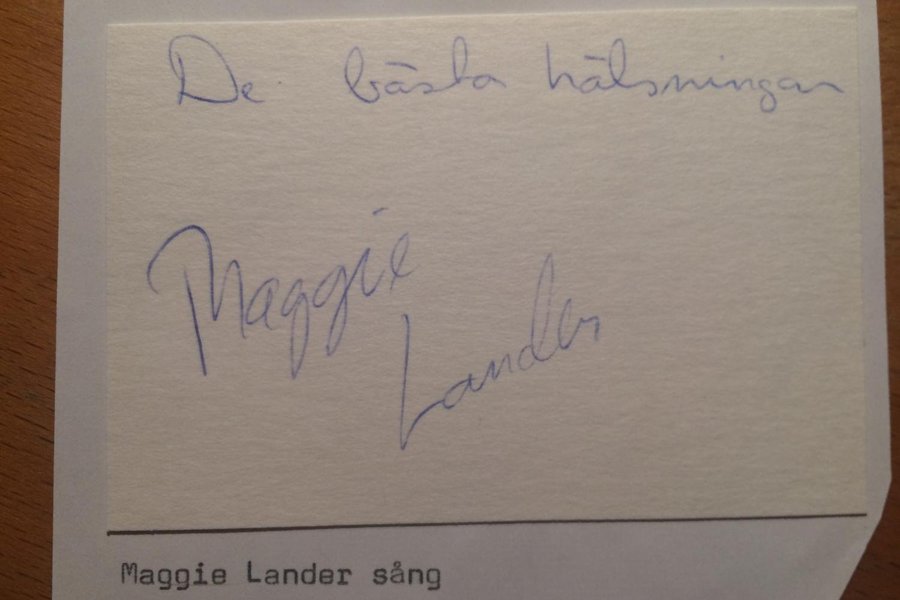 De bästa hälsningar
Maggie
Lander
Maggie Lander sång